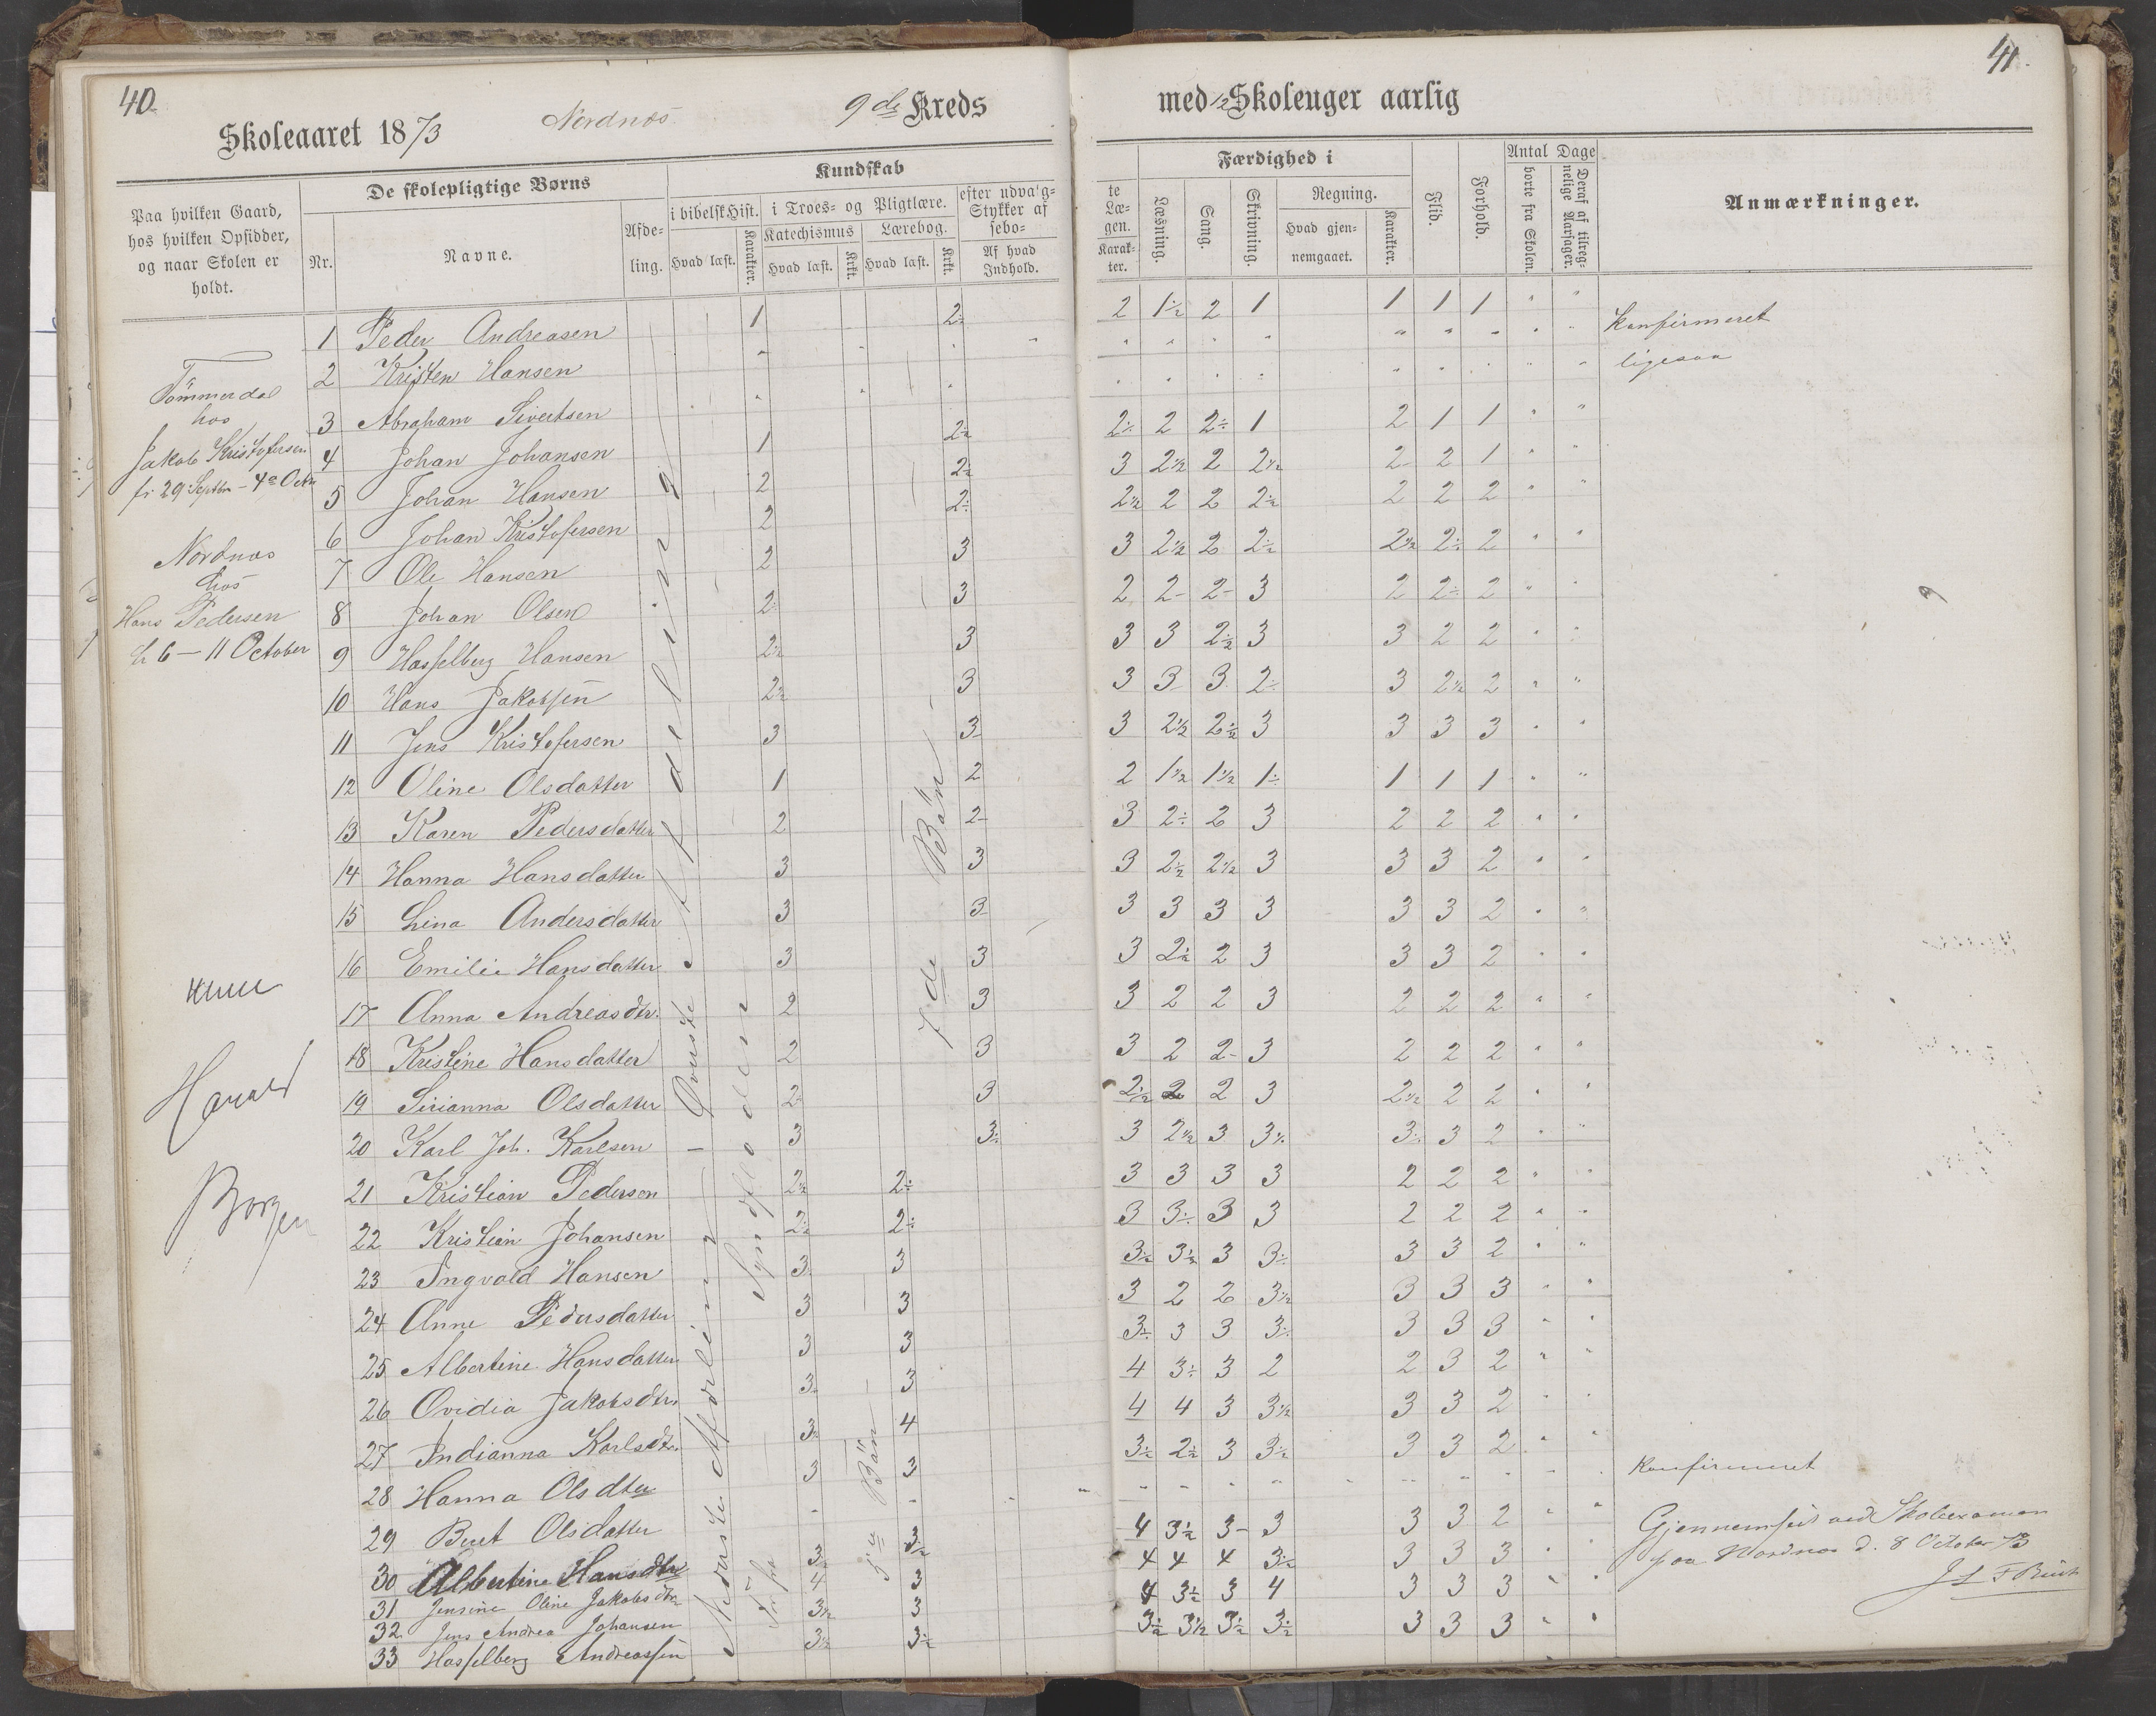 40.
Skoleaaret 1873
Nordnæs
9de Kreds
De skolepligtige Børns
Kundskab
Paa hvilken Gaard, hos hvilken Opsidder, og naar Skolen er holdt.
Nr.
Navne.
Afde-
ling.
i bibelsk Hist.
i Troes- og Pligtlære.
efter udvalg-
Stykker af
sebo-
Katechismus
Lærebog.
Hvad læst.
Karakter.
Hvad læst.
Krkt.
Hvad læst.
Krkt.
Af hvad
Indhold.
Tömmerdal
hos
Jakob Kristofersen
fr 29 Septbr - 4de Octbr
Nordnæs
hos
Hans Pedersen
fr 6 - 11 October
Harald
Borgen
Øverste Afdeling
Nederste Afdeling
1 Peder Andreasen 1 2÷
2 Kristen Hansen
3 Abraham Sivertsen
4 Johan Johansen 1 2½
5 Johan Hansen 2 2½
6 Johan Kristofersen 2 2÷
7 Ole Hansen 2 3
8 Johan Olsen 2÷ 3
9 Hasselberg Hansen 2½ 3
10 Hans Jakobsen 2½ 3
11 Jens Kristofersen 3 3
12 Oline Olsdatter 1 2
13 Karen Pedersdatter 2 2
14 Hanna Hansdatter 3 3
15 Lina Andersdatter 3 3
16 Emilie Hansdatter 3 3
17 Anna Andreasdtr. 2 3
18 Kristine Hansdatter 2 3
19 Sirianna Olsdatter 2½ 3
20 Karl Joh. Karlsen 3 3÷
21 Kristian Pedersen 2½ 2÷
22 Kristian Johansen 2½ 2÷
23 Ingvald Hansen 3÷ 3
24 Anne Pedersdatter 3 3
25 Albertine Hansdatter 3 3
26 Ovidia Jakobsdtr. 3÷ 3
27 Indianna Karlsdtr. 3½ 4
28 Hanna Olsdtr 3 3
29 Beret Olsdatter
30 Albertine Hansdtr 3½ 3½
31 Jensine Oline Jakobsdtr 4 3
32 Jens Andrea Johansen 3½ 3
33 Hasselberg Andreassen 3½ 3½
41.
med 12 Skoleuger aarlig
Færdighed i
Antal Dage
te
Læ-
gen.
Karak-
ter.
Læsning.
Sang.
Skrivning.
Regning.
Hvad gjen-
nemgaaet.
Karakter.
Flid.
Forhold.
borte fra Skolen.
Deraf af tilreg-
nelige Aarsager.
Anmærkninger.
2 1½ 2 1 1 1 1 " "
konfirmeret
ligesaa
2½ 2 2÷ 1 2 1 1 " "
3 2½ 2 2½ 2 2 1 " "
2½ 2 2 2½ 2 2 2 " "
3 2½ 2 2½ 2½ 2÷ 2 " "
2 2 2 3 2 2÷ 2 " "
3 3 2½ 3 3 2 2 " "
3 3 3 2÷ 3 2½ 2 " "
3 2½ 2½ 3 3 3 3 " "
2 1½ 1½ 1÷ 1 1 1 " "
3 2÷ 2 3 2 2 2 " "
3 2½ 2½ 3 3 3 2 " "
3 3 3 3 3 3 2 " "
3 2½ 2 3 3 3 2 " "
3 2 2 3 2 2 2 " "
3 2 2 3 2 2 2 " "
2½ 2 2 3 2½ 2 2 " "
3 2½ 3 3½ 3÷ 3 2 " "
3 3 3 3 2 2 2 " "
3 3÷ 3 3 2 2 2 " "
3½ 3½ 3 3÷ 3 3 2 " "
3 2 2 3½ 3 3 3 " "
3÷ 3 3 3÷ 3 3 3 " "
4 3÷ 3 2 2 3 2 " "
4 4 3 3½ 3 3 2 " "
3½ 2½ 3 3½ 3 3 2 " "
Konfirmeret
4 3½ 3 3 3 3 2 " "
4 4 4 3½ 3 3 3 " "
4 3½ 3 4 3 3 3 " "
3½ 3½ 3½ 3½ 3 3 3 " "
Gjennemseet ved Skoleexamen
paa Nordnæs d. 8 October 73